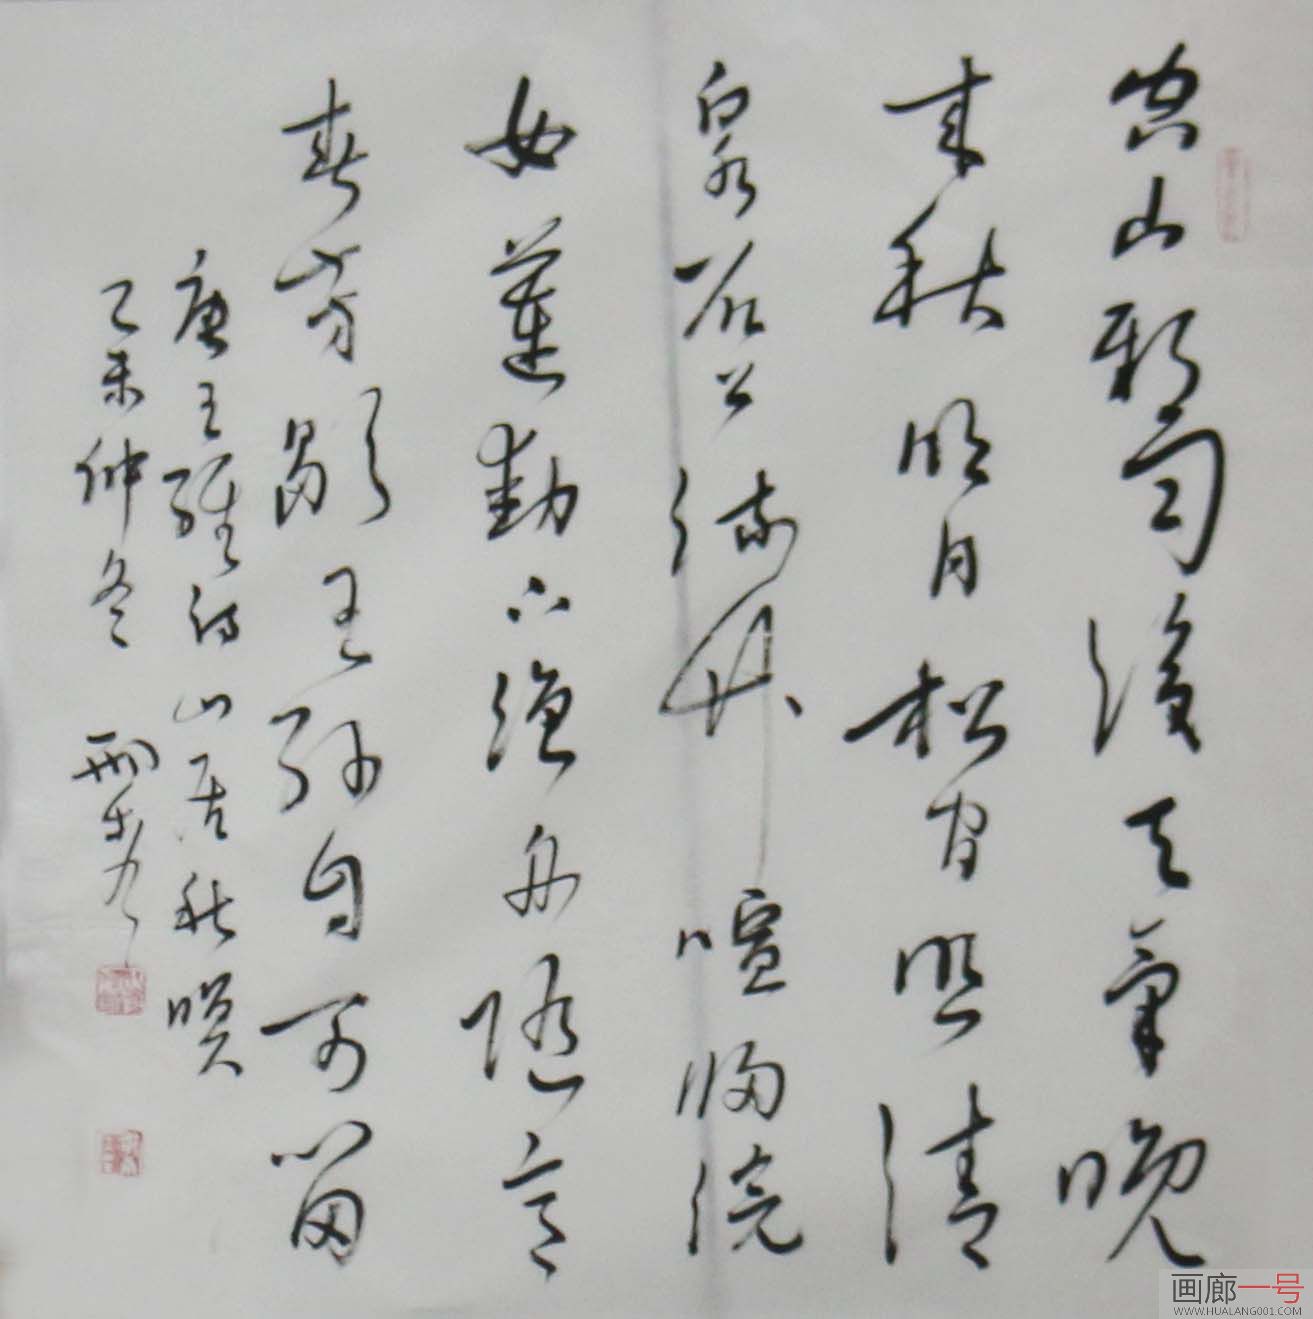 空山新雨後天氣晚
来秋明月松间照清
泉石上流竹喧歸浣
女蓮動下漁舟隨意
春芳歇王孫自可留
唐王維詩山居秋暝
乙未仲冬
画廊一号
WWW.HUALANG001.COM